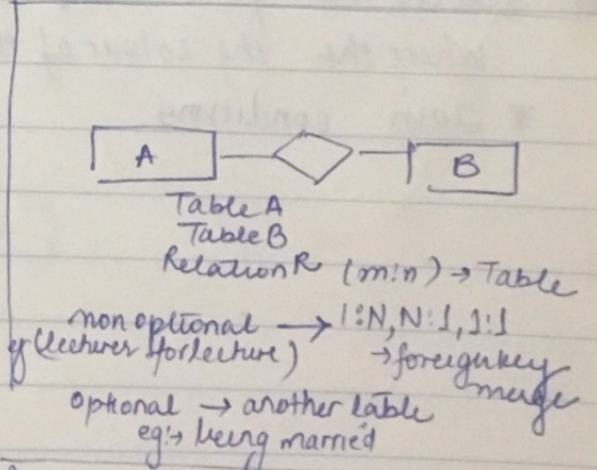 A
B
Table A
Table B
Relation R (m:n) → Table
non optional → 1:N, N:1, 1:1
(lecturer for lecture) → foreign key
merge
optional → another table
eg:→ being married